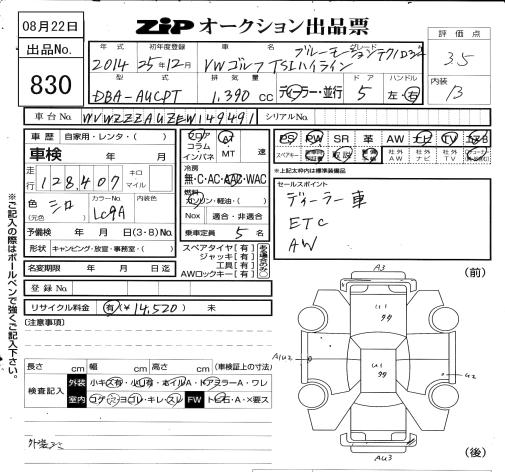 08月22日
ZIPオークション出品票
出品No.
830
評価点
3.5
内装
B
年式 初年度登録 車名 グレード
2014 25年12月 VWゴルフTSIハイライン ブルーモーションテクノロジー
型式 排気量 ドア ハンドル
DBA-AUCPT 1,390cc ディーラー・並行 5 左・右
車台No. WVWZZZAUZEW149491 シリアルNo.
車歴 自家用・レンタ・( )
車検 年 月
走行 128,407 キロ マイル
色(元色) シロ カラーNo. LC9A 内装色
予備検 年 月 日(3・8)No.
形状 キャンピング・放宣・事務室・( )
名変期限 年 月 日迄
登録No.
リサイクル料金 有(¥14,520) 未
フロア コラム インパネ AT MT 速
冷房
無・C・AC・AAC・WAC
燃料
ガソリン・軽油・( )
Nox 適合・非適合
乗車定員 5 名
スペアタイヤ[有]
ジャッキ[有]
工具[有]
AWロックキー[有]
ある場合のみ○
PS PW SR 革 AW ナビ TV エアB
スペアキー 取説 社外AW 社外ナビ 社外TV
*上記太枠内は標準装備品
セールスポイント
ディーラー車
ETC
AW
[注意事項]
長さ cm 幅 cm 高さ cm (車検証上の寸法)
検査記入 外装 小キズ有・小凹有・ホイルA・ドアミラーA・ワレ
室内 コゲ・穴・ヨゴレ・キレ・スレ FW トビ石・A・×要ス
外装キズ
(前)
A3
U1
タタ
A1U2
U1
タタ
U2
AU3
(後)
※ご記入の際はボールペンで強くご記入下さい。